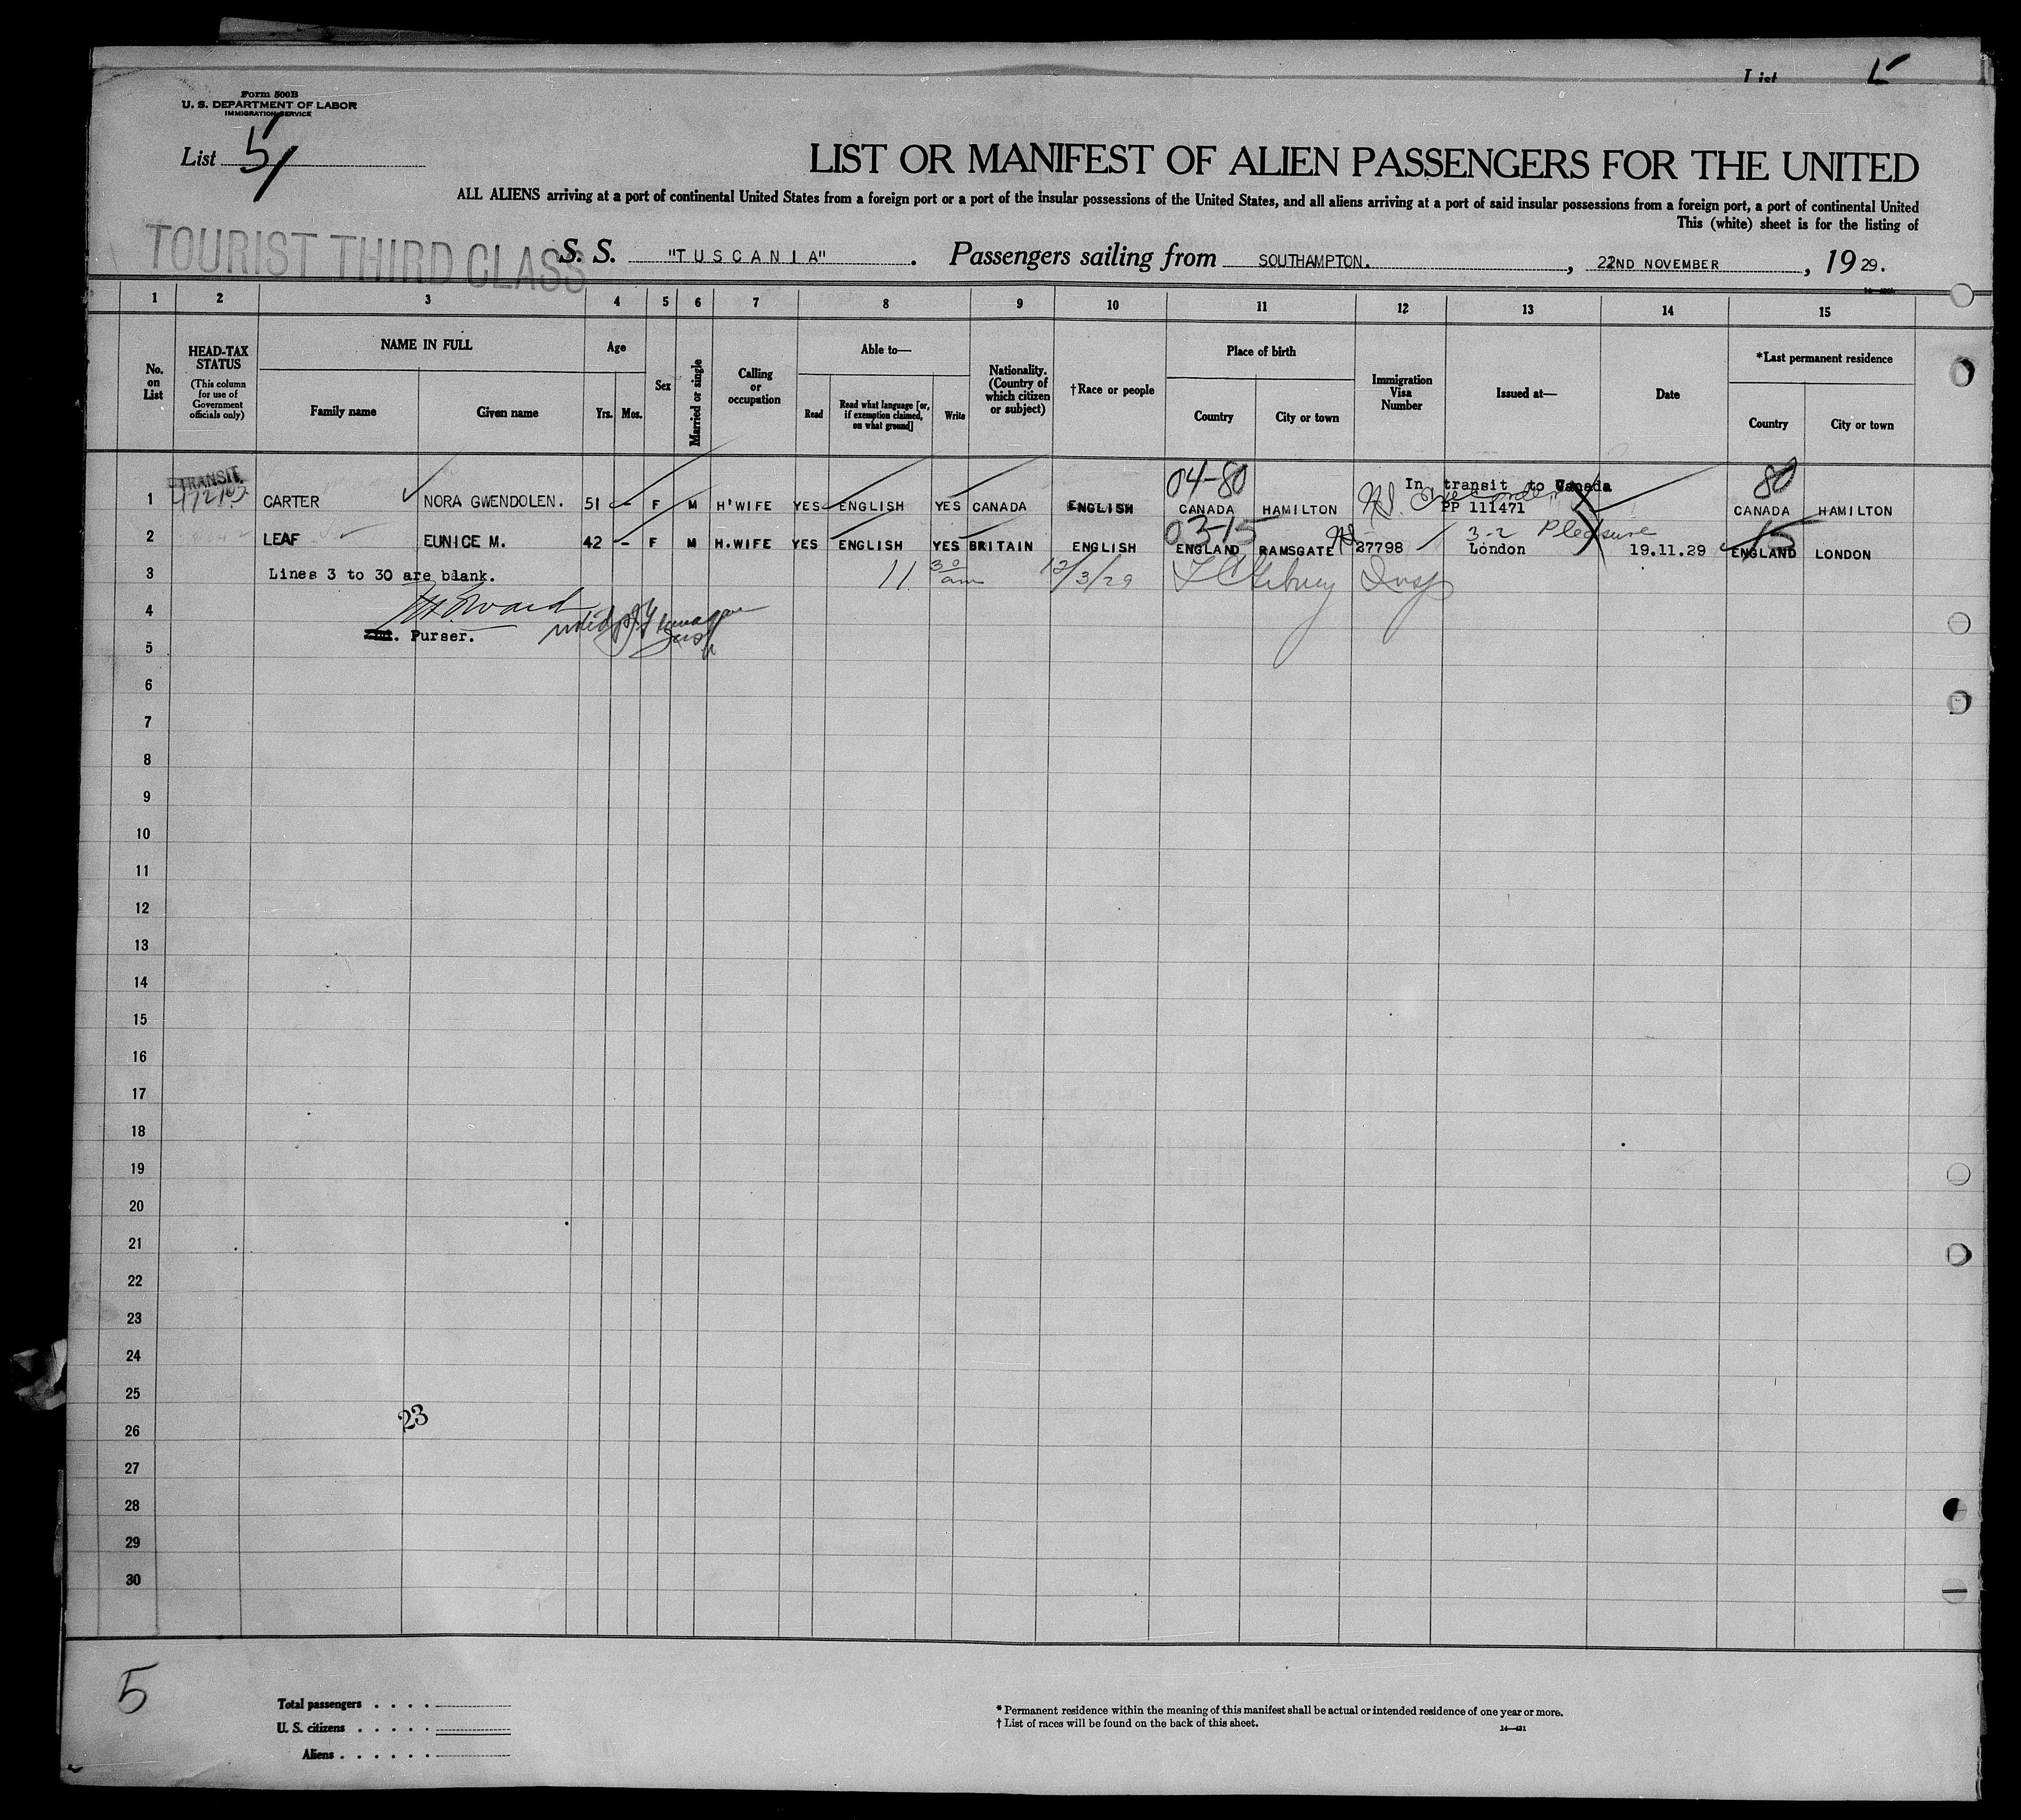 List 5
Form 500B
U. S. DEPARTMENT OF LABOR
IMMIGRATION SERVICE
List 5
LIST OR MANIFEST OF ALIEN PASSENGERS FOR THE UNITED
ALL ALIENS arriving at a port of continental United States from a foreign port or a port of the insular possessions of the United States, and all aliens arriving at a port of said insular possessions from a foreign port, a port of continental United
This (white) sheet is for the listing of
TOURIST THIRD CLASS
S. S. "TUSCANIA". Passengers sailing from SOUTHAMPTON., 22ND NOVEMBER, 19 29.
1 2 3 4 5 6 7 8 9 10 11 12 13 14 15
No. on List
HEAD-TAX STATUS
(This column for use of Government officials only)
NAME IN FULL
Family name
Given name
Age
Yrs.
Mos.
Sex
Married or single
Calling or occupation
Able to—
Read
Read what language [or, if exemption claimed, on what ground]
Write
Nationality. (Country of which citizen or subject)
†Race or people
Place of birth
Country
City or town
Immigration Visa Number
Issued at—
Date
*Last permanent residence
Country
City or town
TRANSIT.
04-80
In transit to Canada
80
1 CARTER NORA GWENDOLEN. 51 - F M H'WIFE YES ENGLISH YES CANADA ENGLISH CANADA HAMILTON PP 111471 CANADA HAMILTON
03-15
3-2 Pleasure
15
2 LEAF EUNICE M. 42 - F M H.WIFE YES ENGLISH YES BRITAIN ENGLISH ENGLAND RAMSGATE 27798 London 19.11.29 ENGLAND LONDON
3 Lines 3 to 30 are blank. 11 30 am 12/3/29 Insp
4
Purser.
5
6
7
8
9
10
11
12
13
14
15
16
17
18
19
20
21
22
23
24
25
23
26
27
28
29
30
5
Total passengers . . . .
U. S. citizens . . . . .
Aliens . . . . . .
* Permanent residence within the meaning of this manifest shall be actual or intended residence of one year or more.
† List of races will be found on the back of this sheet.
14—431